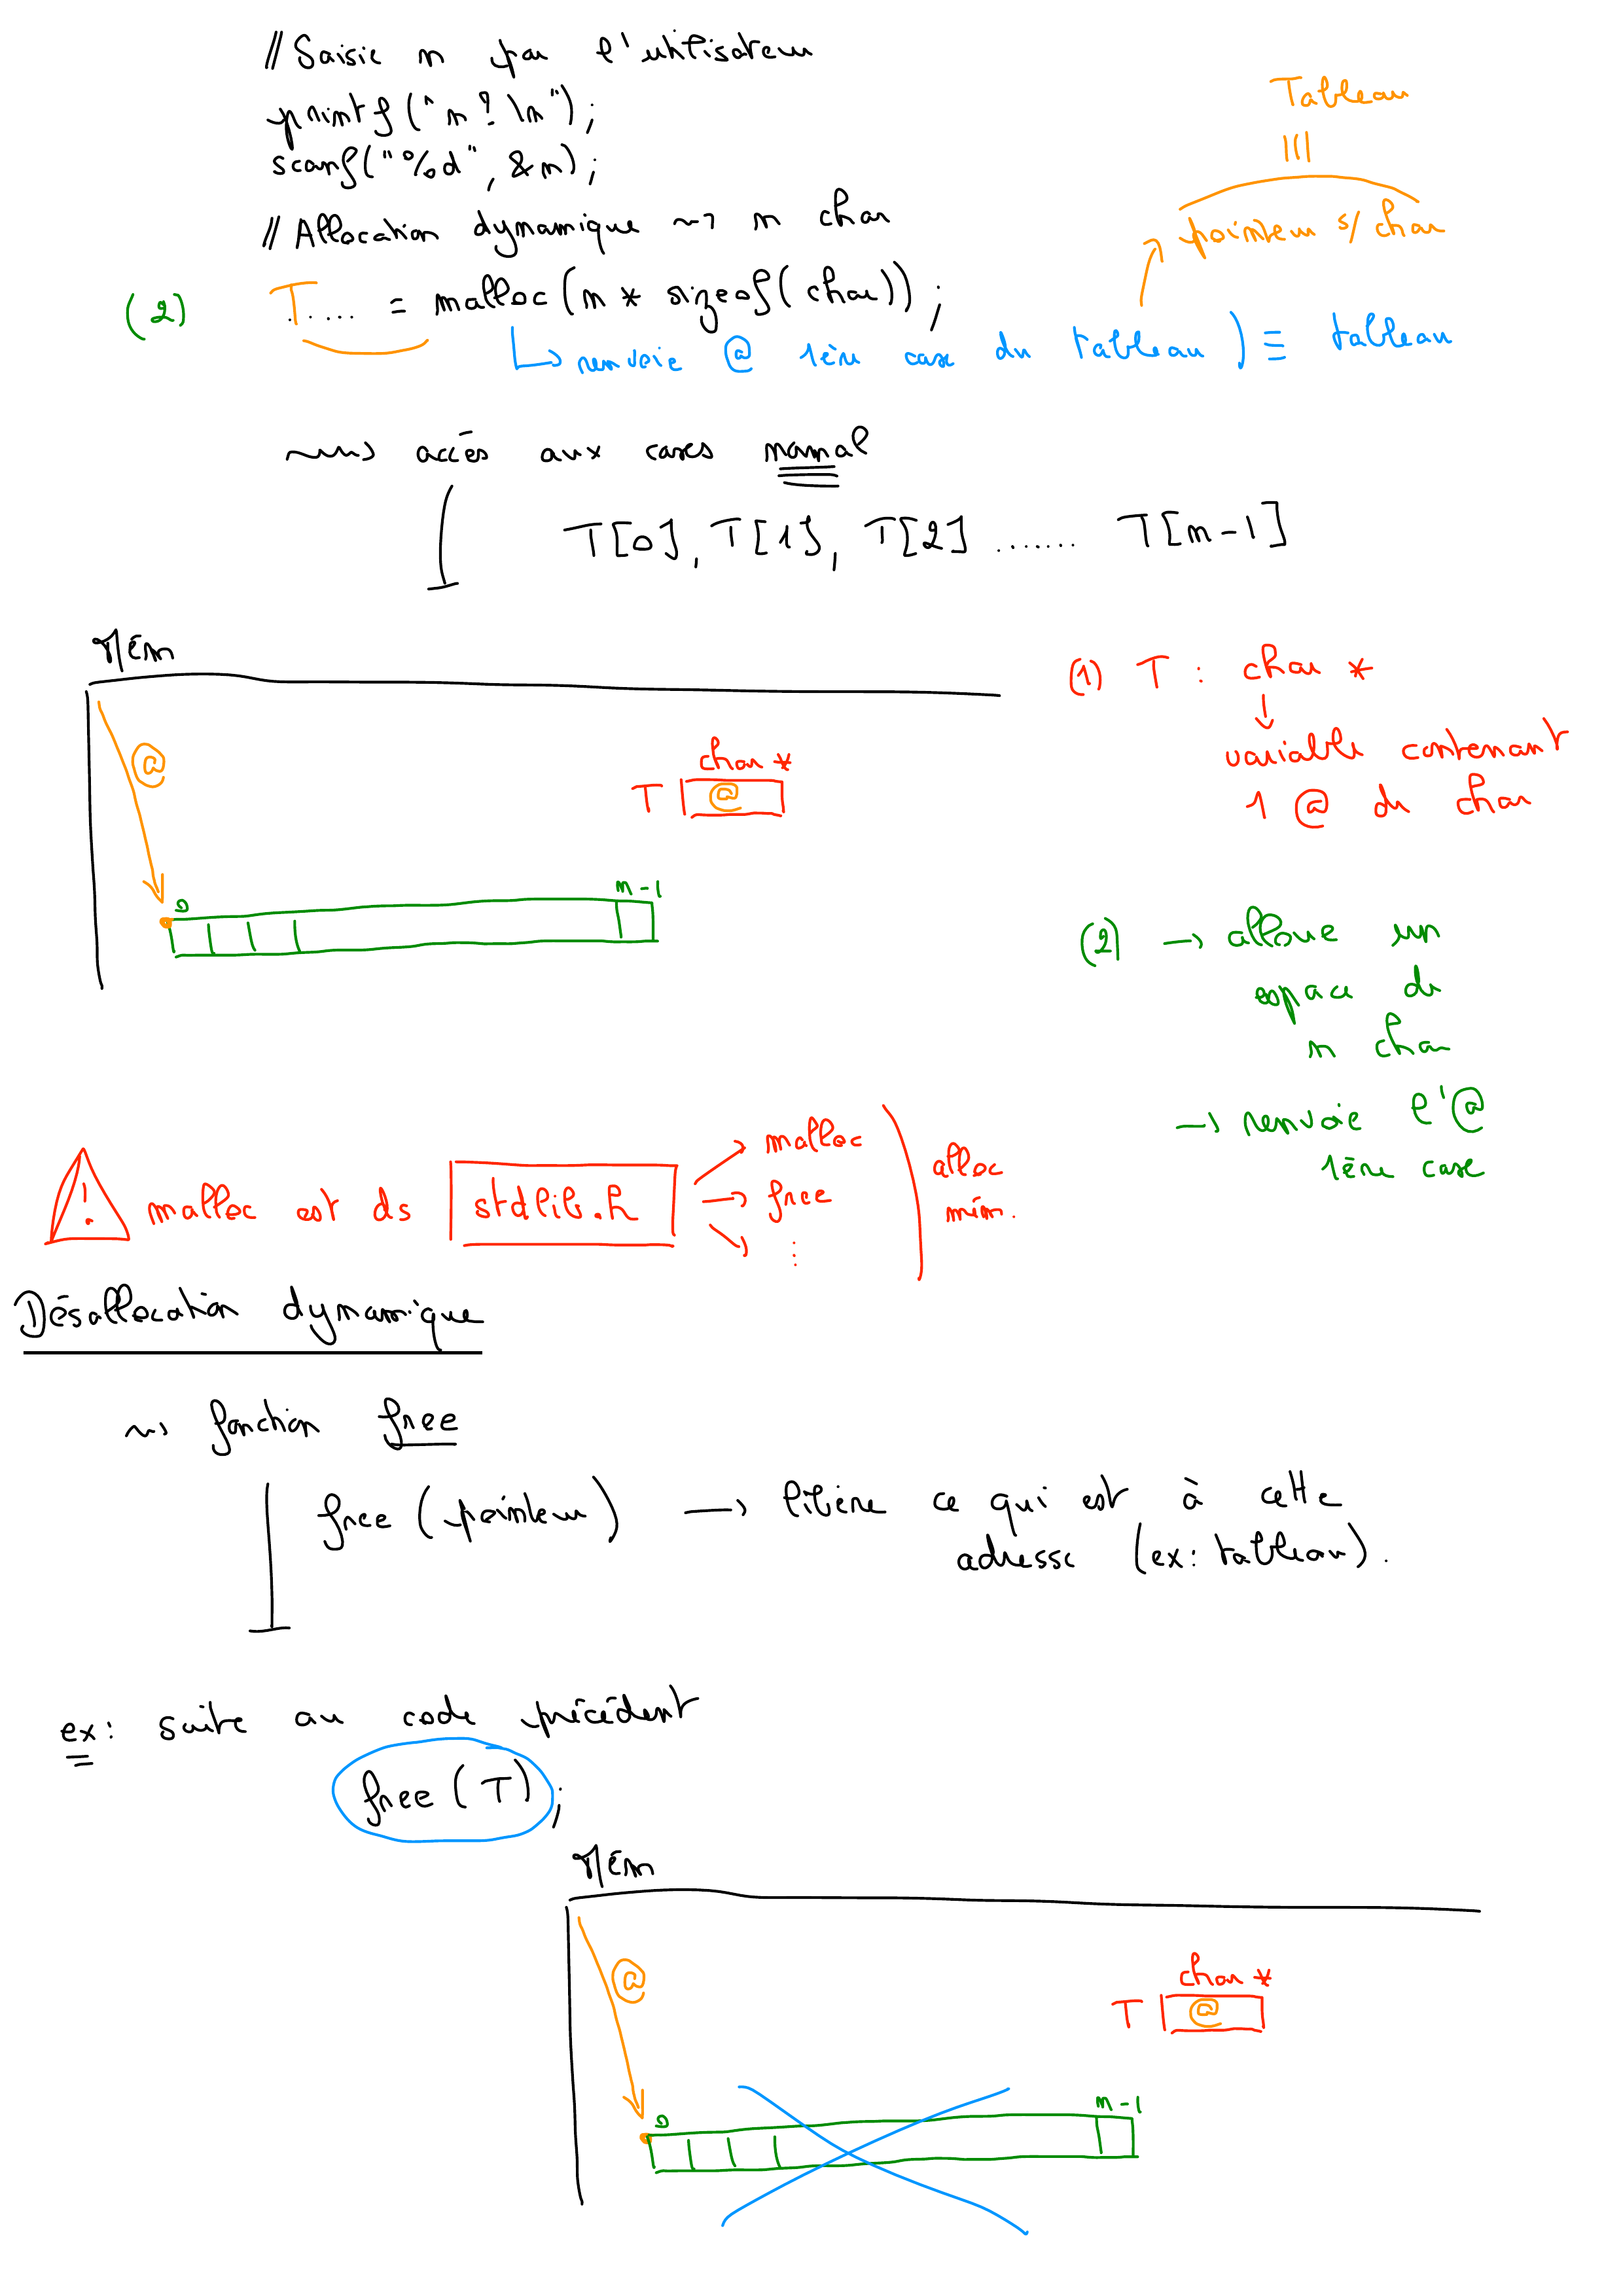 // Saisie n par l'utilisateur
printf("n? \n");
scanf("%d", &n);
// Allocation dynamique ~> n char
(2) T ..... = malloc(n * sizeof(char));
Tableau
|||
pointeur s/ char
↳ renvoie @ 1ère case du tableau ) ≡ tableau
~> accès aux cases normal
T[0], T[1], T[2] ....... T[n-1]
Mém
@
char *
T @
0
n-1
(1) T : char *
↓
variable contenant
1 @ de char
(2) → alloue un
espace de
n char
→ renvoie l'@
1ère case
! malloc est ds stdlib.h
→ malloc
→ free
→ ⋮
alloc
mém.
Désallocation dynamique
~> fonction free
free (pointeur) → libère ce qui est à cette
adresse (ex: tableau).
ex: suite au code précédent
free (T);
Mém
@
char *
T @
0
n-1